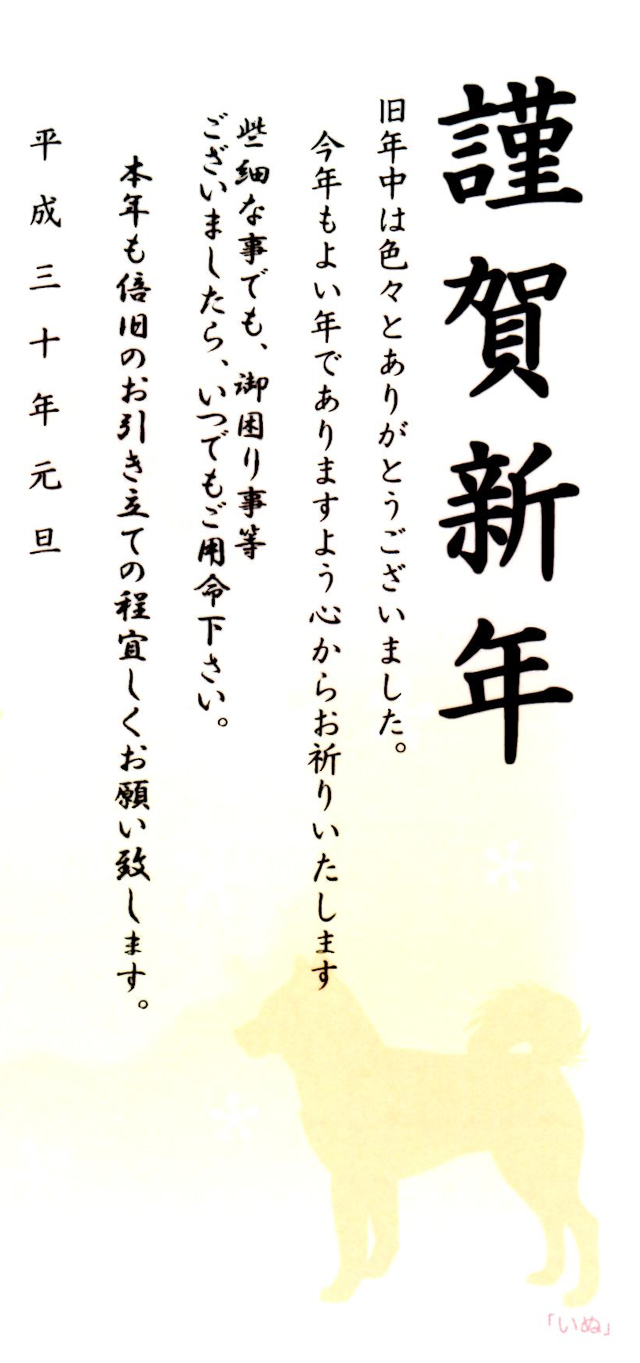 謹賀新年
旧年中は色々とありがとうございました。
今年もよい年でありますよう心からお祈りいたします
些細な事でも、御困り事等
ございましたら、いつでもご用命下さい。
本年も倍旧のお引き立ての程宜しくお願い致します。
平成三十年元旦
「いぬ」